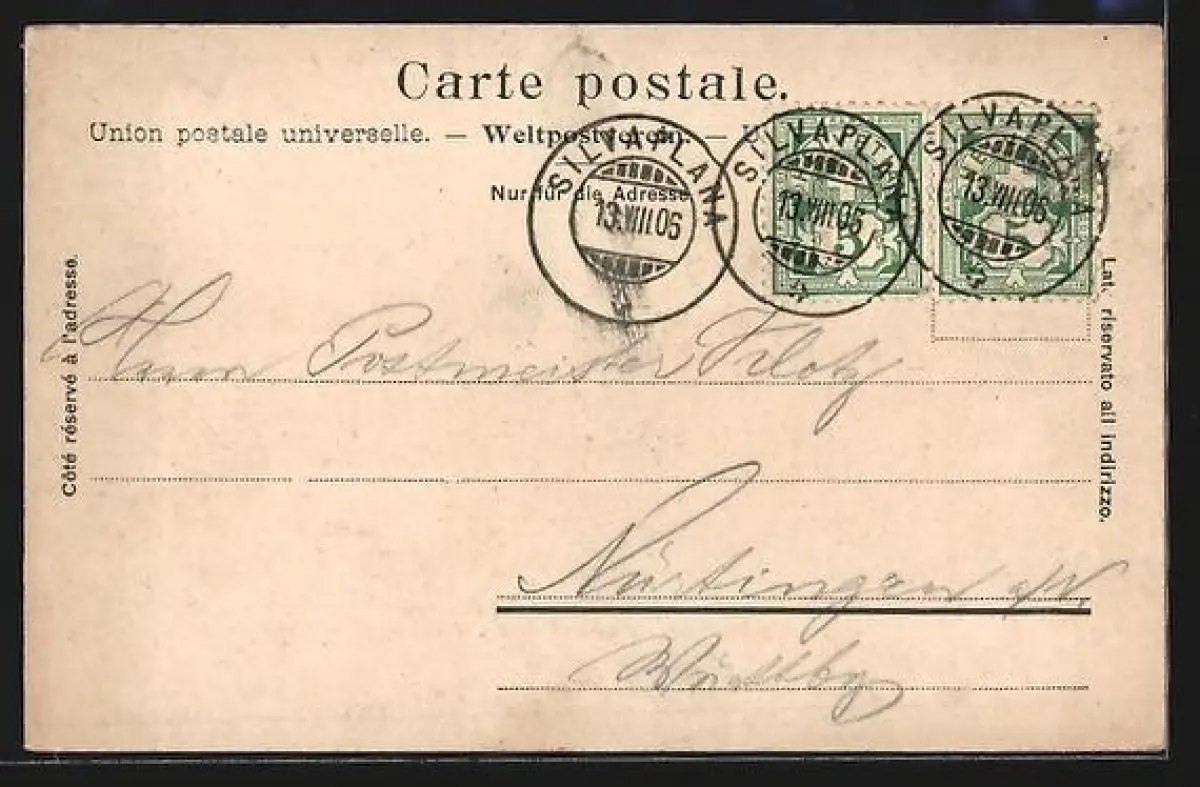 Carte postale.
Union postale universelle. — Weltpostverein. — U
Nur für die Adresse
SILVAPLANA
13.VIII.06
SILVAPLANA
13.VIII.06
SILVAPLANA
13.VIII.06
5
5
Côté réservé à l'adresse.
Lat. riservato all indirizzo.
Herrn Postmeister Klotz
Nürtingen a/N.
Württbg